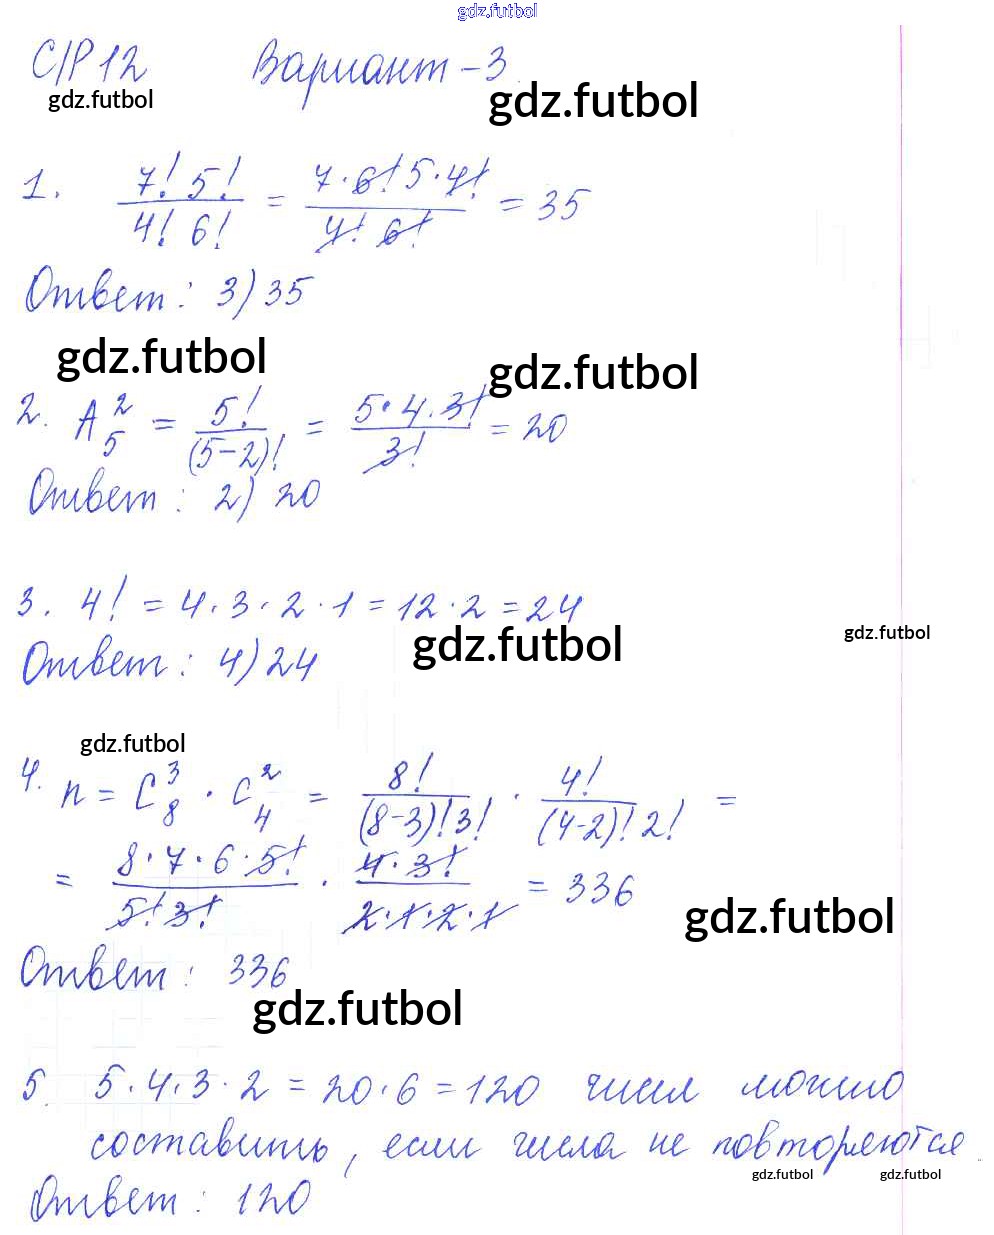 gdz.futbol
С/Р 12 Вариант-3
gdz.futbol gdz.futbol
1. 7! 5! / 4! 6! = 7·6! 5·4! / 4! 6! = 35
Ответ: 3) 35
gdz.futbol gdz.futbol
2. A₅² = 5! / (5-2)! = 5·4·3! / 3! = 20
Ответ: 2) 20
3. 4! = 4·3·2·1 = 12·2 = 24
gdz.futbol gdz.futbol
Ответ: 4) 24
gdz.futbol
4. n = C₈³ · C₄² = 8! / (8-3)! 3! · 4! / (4-2)! 2! =
= 8·7·6·5! / 5! 3! · 4·3! / 2·1·2·1 = 336
gdz.futbol
Ответ: 336
gdz.futbol
5. 5·4·3·2 = 20·6 = 120 чисел можно
составить, если числа не повторяются
gdz.futbol gdz.futbol
Ответ: 120